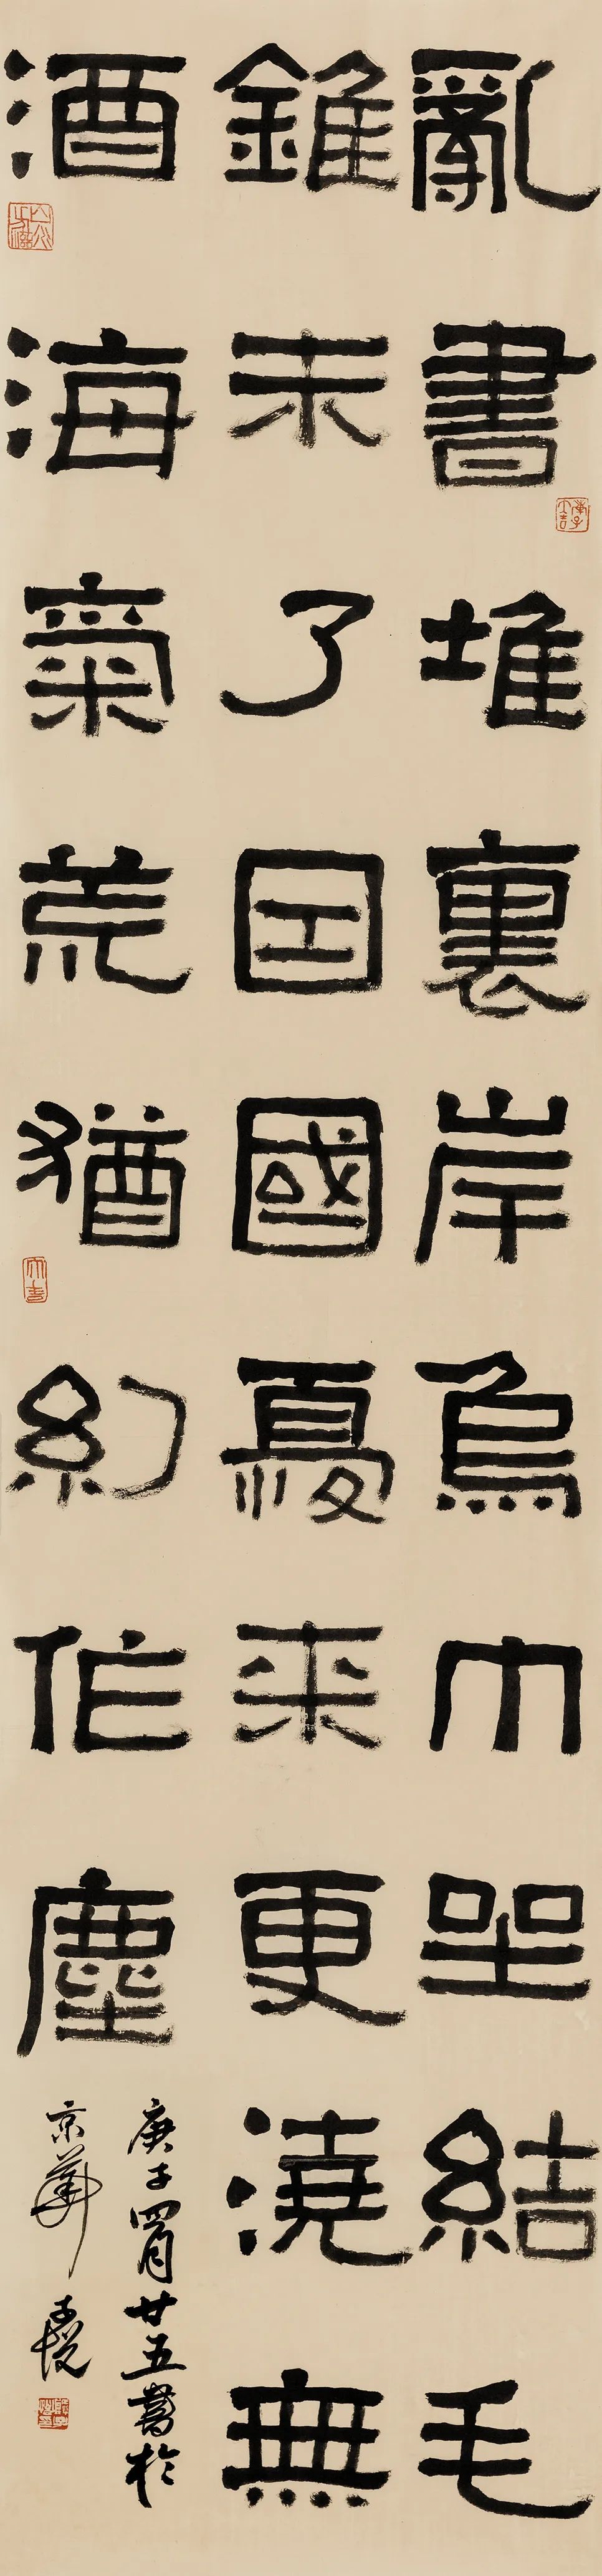 亂書堆裏岸烏巾坐結毛
錐未了因國憂來更澆無
酒海氣荒猶幻作塵
庚子四月廿五書於
京華